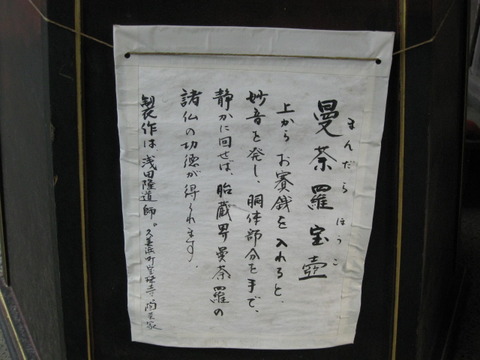 曼荼羅宝壺
まんだらほうこ
上からお賽銭を入れると、
妙音を発し、胴体部分を手で、
静かに回せば、胎蔵界曼荼羅の
諸仏の功徳が得られます。
製作は、浅田隆道師。久美浜町